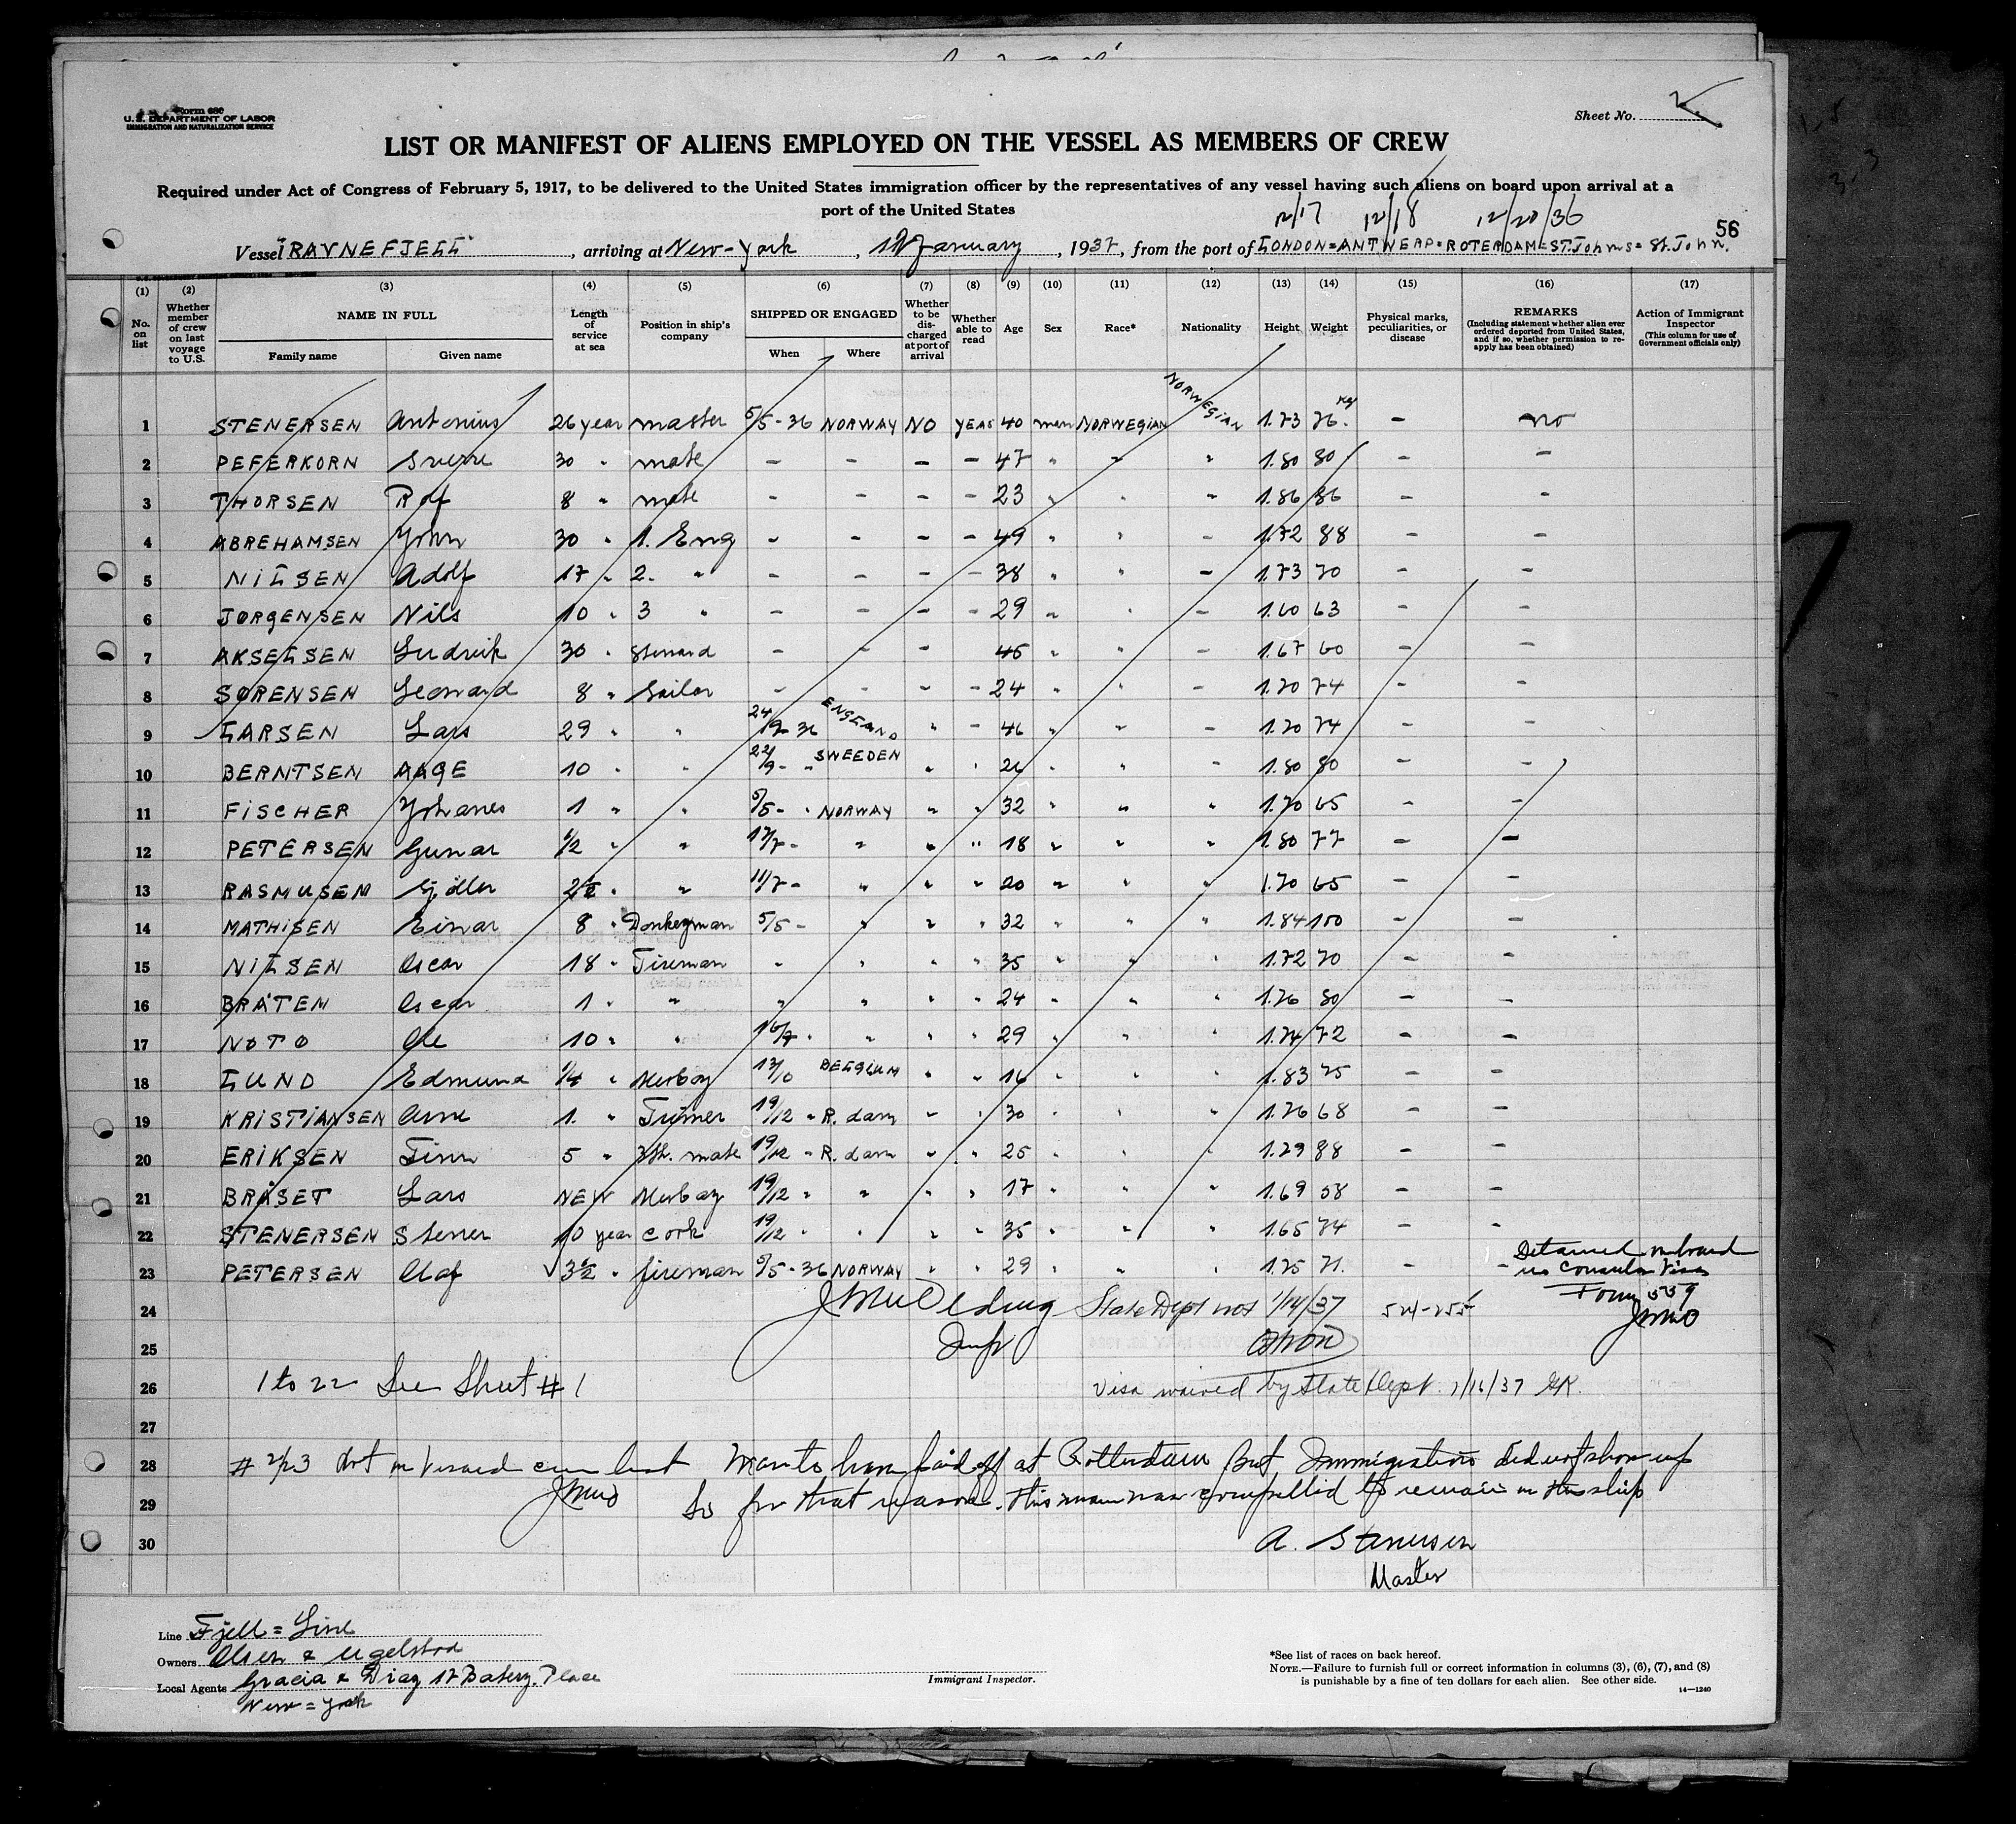 Form 680
U. S. DEPARTMENT OF LABOR
IMMIGRATION AND NATURALIZATION SERVICE
Sheet No. 2
LIST OR MANIFEST OF ALIENS EMPLOYED ON THE VESSEL AS MEMBERS OF CREW
Required under Act of Congress of February 5, 1917, to be delivered to the United States immigration officer by the representatives of any vessel having such aliens on board upon arrival at a
port of the United States
12/17 12/18 12/20/36
56
Vessel RAVNEFJELL, arriving at New-York, 12 January, 1937, from the port of LONDON=ANTWERP=ROTERDAM=ST.Johns=St.John.
(1) (2) (3) (4) (5) (6) (7) (8) (9) (10) (11) (12) (13) (14) (15) (16) (17)
No. on list
Whether member of crew on last voyage to U.S.
NAME IN FULL
Family name Given name
Length of service at sea
Position in ship's company
SHIPPED OR ENGAGED
When Where
Whether to be discharged at port of arrival
Whether able to read
Age
Sex
Race*
Nationality
Height
Weight
Physical marks, peculiarities, or disease
REMARKS
(Including statement whether alien ever ordered deported from United States, and if so, whether permission to re-apply has been obtained)
Action of Immigrant Inspector
(This column for use of Government officials only)
1 STENERSEN Antonius 26 year master 5/5-36 NORWAY NO YEAS 40 man NORWEGIAN NORWEGIAN 1.73 76. Kg - no
2 PEFERKORN Sverre 30 " mate - - - - 47 " " " 1.80 80 - -
3 THORSEN Rolf 8 " mate - - - - 23 " " " 1.86 86 - -
4 ABREHAMSEN John 30 " 1. Eng - - - - 49 " " - 1.72 88 - -
5 NILSEN Adolf 17 " 2. " - - - - 38 " " - 1.73 70 - -
6 JORGENSEN Nils 10 " 3 " - - - - 29 " " - 1.60 63 - -
7 AKSELSEN Ludvik 30 " Steward - - - 45 " " - 1.67 60 - -
8 SØRENSEN Leonard 8 " Sailor - - - - 24 " " - 1.70 74 - -
9 LARSEN Lars 29 " " 24/9-36 ENGLAND " - 46 " " - 1.70 74 - -
10 BERNTSEN AAGE 10 " " 22/9- " SWEEDEN " " 26 " " " 1.80 80 - -
11 FISCHER Yohanes 1 " " 5/5- " NORWAY " " 32 " " " 1.70 65 - -
12 PETERSEN Gunar 1/2 " " 17/7- " " " 18 " " " 1.80 77 - -
13 RASMUSEN 2 1/2 " " 11/7- " " " 20 " " " 1.70 65 - -
14 MATHISEN Einar 8 " Donkeyman 5/5- " " " 32 " " " 1.84 100 - -
15 NILSEN Oscar 18 " Fireman - " " " 35 " " " 1.72 70 - -
16 BRÅTEN Oscar 1 " " " " " " 24 " " " 1.76 80 - -
17 NØTØ Ole 10 " " 16/7 " " " " 29 " " " 1.74 72 - -
18 LUND Edmund 1/4 " Mesboy 13/10 BELGIUM " " 16 " " " 1.83 75 - -
19 KRISTIANSEN Arne 1. " Trimer 19/12 " R.dam " " 30 " " " 1.76 68 - -
20 ERIKSEN Finn 5 " 3th. mate 19/12 " R.dam " " 25 " " " 1.79 88 - -
21 BRÅSET Lars NEW Mesboy 19/12 " " " " 17 " " " 1.69 58 - -
22 STENERSEN Stener 10 year cook 19/12 " " " " 35 " " " 1.65 74 - -
23 PETERSEN Olaf 3 1/2 " fireman 5/5-36 NORWAY " " 29 " " " 1.75 71. - -
Detained on board
no Consular Visa
Form 559
24 State Dept not 1/14/37 524-255
25 Insp
26 1 to 22 See Sheet # 1 Visa waived by State Dept. 1/16/37
27
28 # 23 Not on visaed crew list Man to have paid off at Rotterdam But Immigration did not show up
29 So for that reason. this man was compelled to remain on this ship
30 A. Stenersen
Master
Line Fjell=Line
Owners Olsen & Ugelstad
Local Agents Gracia & Diaz 17 Batery. Place
New=York
Immigrant Inspector.
*See list of races on back hereof.
NOTE.—Failure to furnish full or correct information in columns (3), (6), (7), and (8)
is punishable by a fine of ten dollars for each alien. See other side.
14—1240